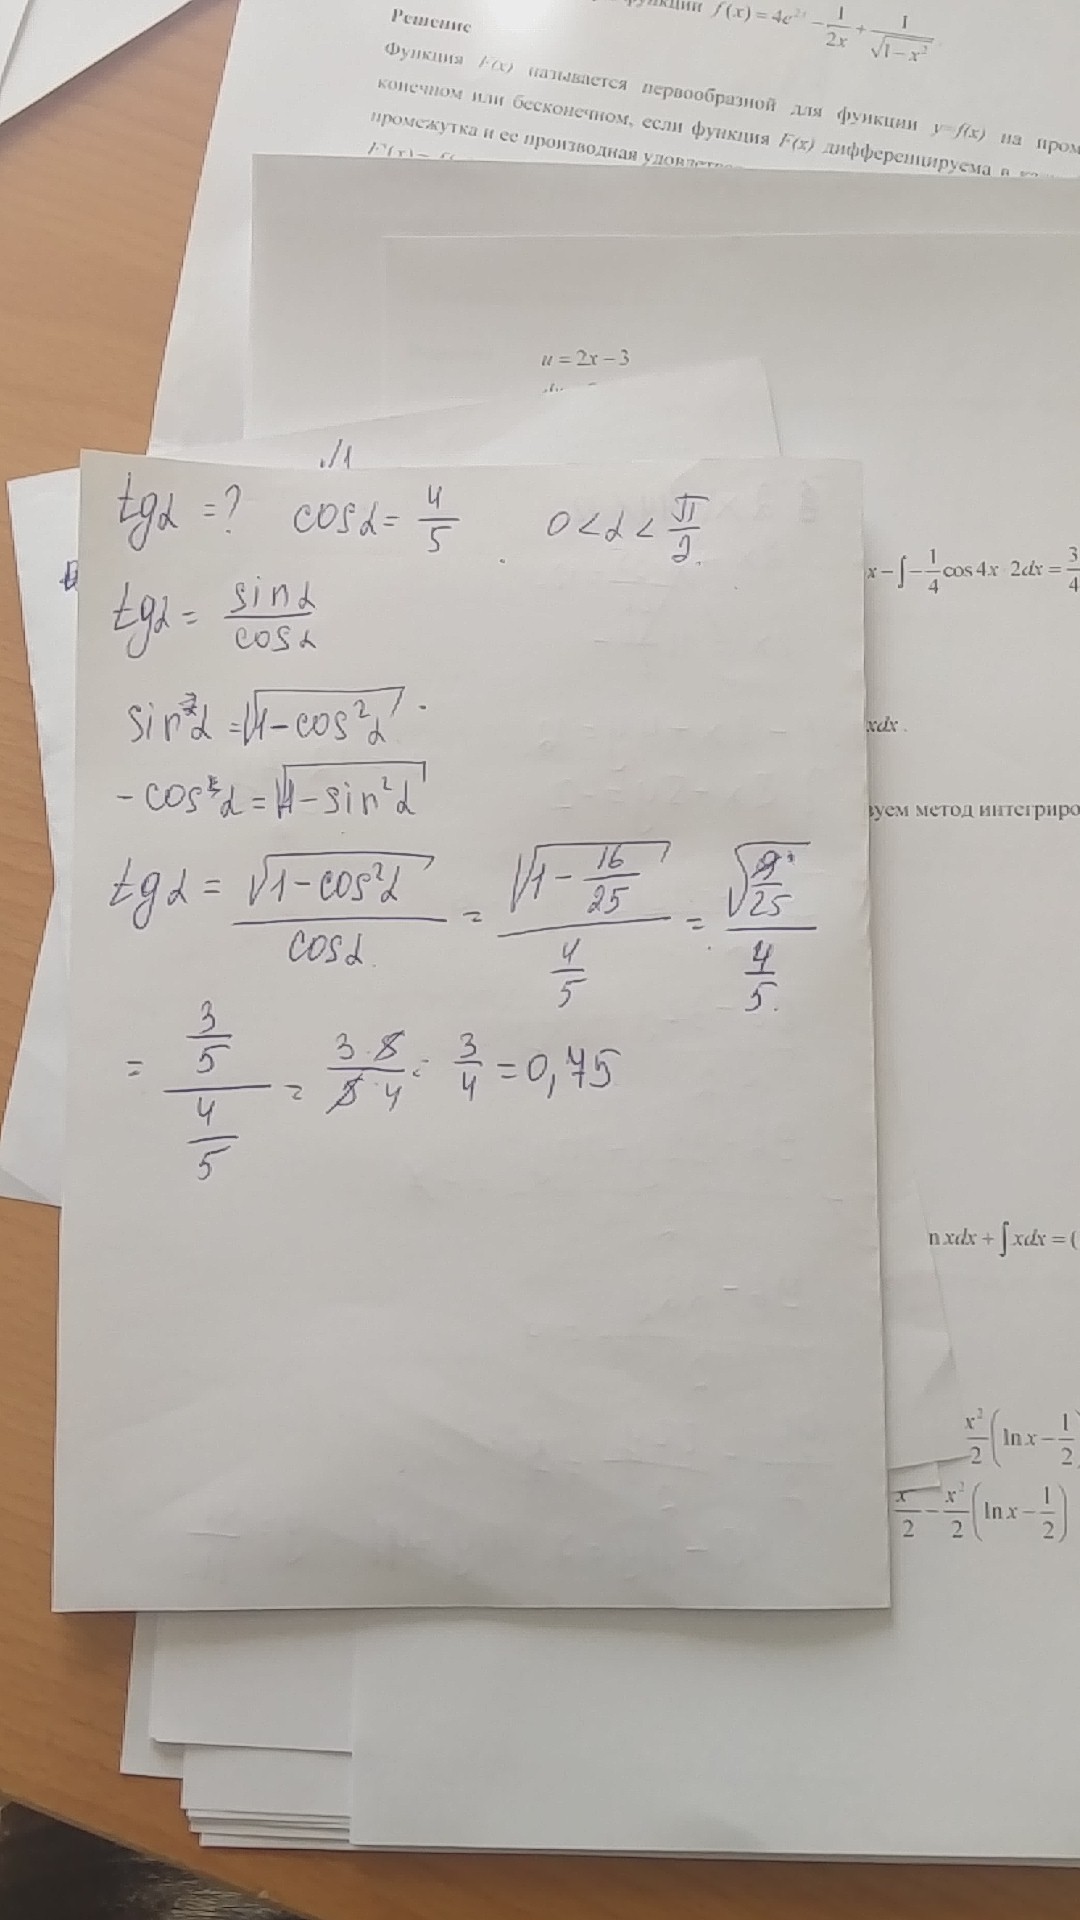 функции f(x) = 4e^{2x} − 1/(2x) + 1/√(1−x²)
Решение
Функция F(x) называется первообразной для функции y=f(x) на пром
конечном или бесконечном, если функция F(x) дифференцируема в
промежутка и ее производная
u = 2x − 3
√1
tgα = ? cosα = 4/5 0 < α < π/2.
tgα = sinα/cosα
sin²α = √(1−cos²α)
− cos²α = √(1−sin²α)
tgα = √(1−cos²α)/cosα = √(1−16/25)/(4/5) = √(9/25)/(4/5)
= (3/5)/(4/5) = (3·5)/(5·4) = 3/4 = 0,75
x − ∫ − 1/4 cos 4x · 2dx = 3/4
xdx .
зуем метод интегриро
n xdx + ∫ xdx = (
x²/2 (ln x − 1/2)
x/2 − x²/2 (ln x − 1/2)